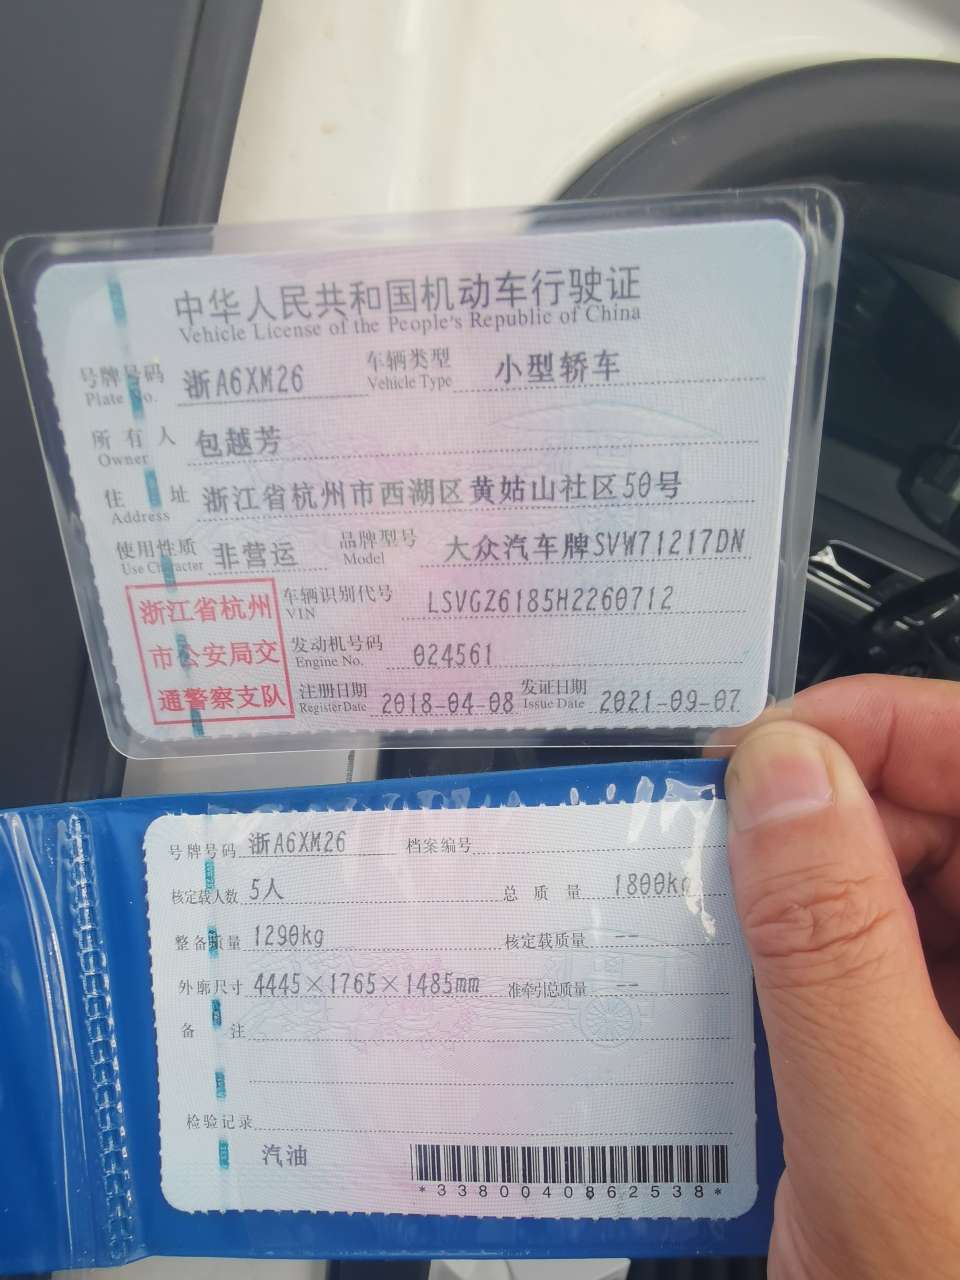 中华人民共和国机动车行驶证
Vehicle License of the People's Republic of China
号牌号码 浙A6XM26 车辆类型 小型轿车
Plate No. Vehicle Type
所有人 包越芳
Owner
住址 浙江省杭州市西湖区黄姑山社区50号
Address
使用性质 非营运 品牌型号 大众汽车牌SVW71217DN
Use Character Model
浙江省杭州
市公安局交
通警察支队
车辆识别代号 LSVGZ6185H2260712
VIN
发动机号码 024561
Engine No.
注册日期 2018-04-08 发证日期 2021-09-07
Register Date Issue Date
号牌号码 浙A6XM26 档案编号
核定载人数 5人 总质量 1800kg
整备质量 1290kg 核定载质量 --
外廓尺寸 4445×1765×1485mm 准牵引总质量 --
备注
检验记录
汽油
*3380040862538*